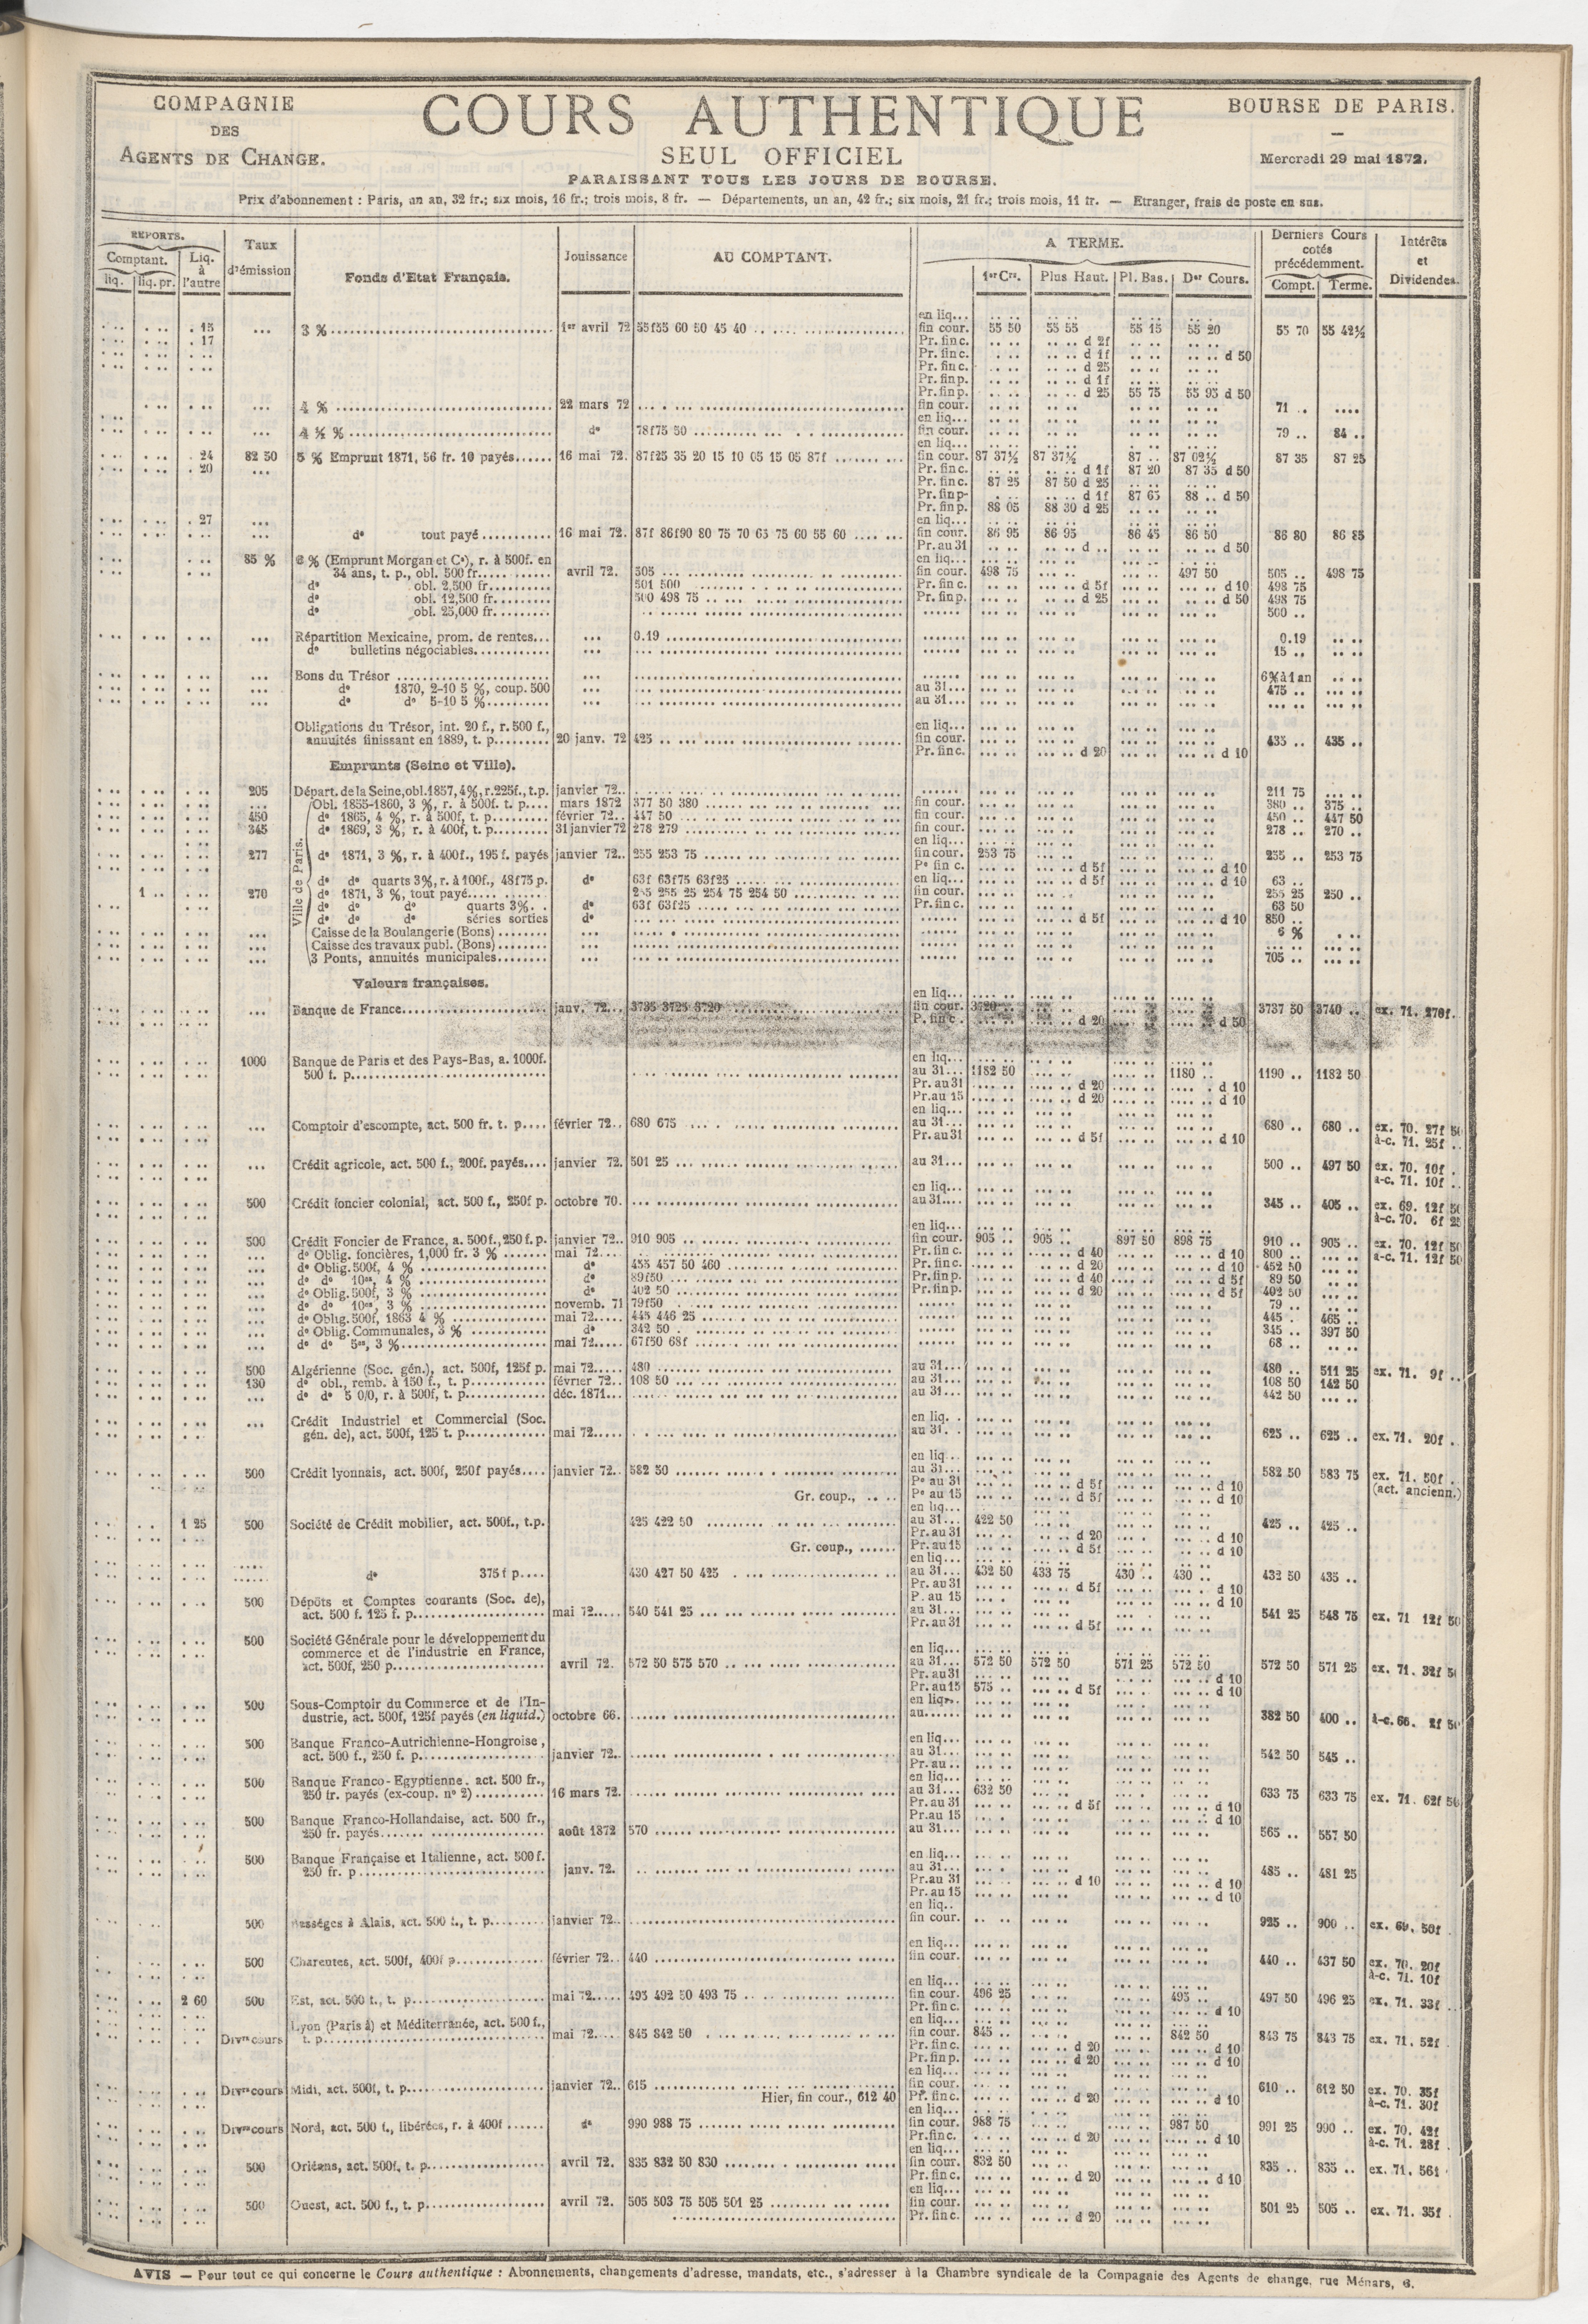 COMPAGNIE
DES
AGENTS DE CHANGE.
COURS AUTHENTIQUE
SEUL OFFICIEL
PARAISSANT TOUS LES JOURS DE BOURSE.
BOURSE DE PARIS.
Mercredi 29 mai 1872.
Prix d'abonnement : Paris, un an, 32 fr.; six mois, 16 fr.; trois mois, 8 fr. — Départements, un an, 42 fr.; six mois, 21 fr.; trois mois, 11 fr. — Etranger, frais de poste en sus.
REPORTS. Comptant. liq. liq. pr. Liq. à l'autre
Taux d'émission
Fonds d'Etat Français.
Jouissance
AU COMPTANT.
A TERME. 1er Crs. Plus Haut. Pl. Bas. Der Cours.
Derniers Cours cotés précédemment. Compt. Terme.
Intérêts et Dividendes.
en liq...
. 15 3 % 1er avril 72 55f55 60 50 45 40 fin cour. 55 50 55 55 55 15 55 20 55 70 55 42½
. 17 Pr. fin c. d 2f
Pr. fin c. d 1f d 50
Pr. fin c. d 25
Pr. fin p. d 1f
Pr. fin p. d 25 55 75 55 95 d 50
4 % 22 mars 72 fin cour. 71
en liq...
4 ½ % do 78f75 50 fin cour. 79 84
en liq...
. 24 82 50 5 % Emprunt 1871, 56 fr. 10 payés 16 mai 72. 87f25 35 20 15 10 05 15 05 87f fin cour. 87 37½ 87 37½ 87 87 02½ 87 35 87 25
. 20 Pr. fin c. d 1f 87 20 87 35 d 50
Pr. fin c. 87 25 87 50 d 25
Pr. fin p. d 1f 87 65 88 d 50
Pr. fin p. 88 05 88 30 d 25
. 27 en liq...
do tout payé 16 mai 72. 87f 86f90 80 75 70 65 75 60 55 60 fin cour. 86 95 86 95 86 45 86 50 86 80 86 85
Pr. au 31 d d 50
85 % 6 % (Emprunt Morgan et Ce), r. à 500f. en en liq...
34 ans, t. p., obl. 500 fr. avril 72. 505 fin cour. 498 75 497 50 505 498 75
do obl. 2,500 fr. 501 500 Pr. fin c. d 5f d 10 498 75
do obl. 12,500 fr. 500 498 75 Pr. fin p. d 25 d 50 498 75
do obl. 25,000 fr. 500
Répartition Mexicaine, prom. de rentes 0.19 0.19
do bulletins négociables 15
Bons du Trésor 6%à1an
do 1870, 2-10 5 %, coup. 500 au 31 475
do do 5-10 5 % au 31
Obligations du Trésor, int. 20 f., r. 500 f., en liq...
annuités finissant en 1889, t. p. 20 janv. 72 425 fin cour. 435 435
Pr. fin c. d 20 d 10
Emprunts (Seine et Ville).
205 Départ. de la Seine, obl. 1857, 4%, r. 225f., t.p. janvier 72. 211 75
Ville de Paris.
Obl. 1855-1860, 3 %, r. à 500f. t. p. mars 1872 377 50 380 fin cour. 380 375
450 do 1865, 4 %, r. à 500f, t. p. février 72. 447 50 fin cour. 450 447 50
345 do 1869, 3 %, r. à 400f, t. p. 31 janvier 72 278 279 fin cour. 278 270
en liq...
277 do 1871, 3 %, r. à 400f., 195 f. payés janvier 72. 255 253 75 fin cour. 253 75 255 253 75
Pe fin c. d 5f d 10
do do quarts 3%, r. à 100f., 48f75 p. do 63f 63f75 63f25 en liq... d 5f d 10 63
1 270 do 1871, 3 %, tout payé 255 255 25 254 75 254 50 fin cour. 255 25 250
do do do quarts 3% do 63f 63f25 Pr. fin c. 63 50
do do do séries sorties do d 5f d 10 850
Caisse de la Boulangerie (Bons) 6 %
Caisse des travaux publ. (Bons)
3 Ponts, annuités municipales 705
Valeurs françaises.
en liq...
Banque de France janv. 72. 3735 3725 3720 fin cour. 3720 3737 50 3740 ex. 71. 270f.
P. fin c. d 20 d 50
1000 Banque de Paris et des Pays-Bas, a. 1000f. en liq...
500 f. p. au 31 1182 50 1180 1190 1182 50
Pr. au 31 d 20 d 10
Pr. au 15 d 20 d 10
en liq...
Comptoir d'escompte, act. 500 fr. t. p. février 72. 680 675 au 31 680 680 ex. 70. 27f 50
Pr. au 31 d 5f d 10 à-c. 71. 25f
Crédit agricole, act. 500 f., 200f. payés janvier 72. 501 25 au 31 500 497 50 ex. 70. 10f
à-c. 71. 10f
en liq...
500 Crédit foncier colonial, act. 500 f., 250f p. octobre 70. au 31 345 405 ex. 69. 12f 50
à-c. 70. 6f 25
en liq...
500 Crédit Foncier de France, a. 500f., 250 f. p. janvier 72. 910 905 fin cour. 905 905 897 50 898 75 910 905 ex. 70. 12f 50
do Oblig. foncières, 1,000 fr. 3 % mai 72 Pr. fin c. d 40 d 10 800 à-c. 71. 12f 50
do Oblig. 500f, 4 % do 455 457 50 460 Pr. fin c. d 20 d 10 452 50
do do 10es, 4 % do 89f50 Pr. fin p. d 40 d 5f 89 50
do Oblig. 500f, 3 % do 402 50 Pr. fin p. d 20 d 5f 402 50
do do 10es, 3 % novemb. 71 79f50 79
do Oblig. 500f, 1863 4 % mai 72 445 446 25 445 465
do Oblig. Communales, 3 % do 342 50 345 397 50
do do 5es, 3 % mai 72 67f50 68f 68
500 Algérienne (Soc. gén.), act. 500f, 125f p. mai 72 480 au 31 480 511 25 ex. 71. 9f
130 do obl., remb. à 150 f., t. p. février 72. 108 50 au 31 108 50 142 50
do do 5 0/0, r. à 500f, t. p. déc. 1871 au 31 442 50
Crédit Industriel et Commercial (Soc. en liq.
gén. de), act. 500f, 125 t. p. mai 72 au 31 625 625 ex. 71. 20f
en liq...
500 Crédit lyonnais, act. 500f, 250f payés janvier 72. 582 50 au 31 582 50 583 75 ex. 71. 50f
Pe au 31 d 5f d 10 (act. ancienn.)
Gr. coup., Pe au 15 d 5f d 10
en liq...
1 25 500 Société de Crédit mobilier, act. 500f., t.p. 425 422 50 au 31 422 50 425 425
Pr. au 31 d 20 d 10
Gr. coup., Pr. au 15 d 5f d 10
en liq...
do 375 f p. 430 427 50 425 au 31 432 50 433 75 430 430 432 50 435
Pr. au 31 d 5f d 10
500 Dépôts et Comptes courants (Soc. de), P. au 15 d 10
act. 500 f. 125 f. p. mai 72 540 541 25 au 31 541 25 548 75 ex. 71 12f 50
Pr. au 31 d 5f
500 Société Générale pour le développement du
commerce et de l'industrie en France, en liq...
act. 500f, 250 p. avril 72. 572 50 575 570 au 31 572 50 572 50 571 25 572 50 572 50 571 25 ex. 71. 32f 50
Pr. au 31 d 10
Pr. au 15 575 d 5f d 10
500 Sous-Comptoir du Commerce et de l'In- en liq.
dustrie, act. 500f, 125f payés (en liquid.) octobre 66. au 382 50 400 à-c. 66. 2f 50
500 Banque Franco-Autrichienne-Hongroise, en liq...
act. 500 f., 250 f. p. janvier 72. au 31 542 50 545
Pr. au
500 Banque Franco-Egyptienne. act. 500 fr., en liq...
250 fr. payés (ex-coup. no 2) 16 mars 72. au 31 632 50 633 75 633 75 ex. 71. 62f 50
Pr. au 31 d 5f d 10
500 Banque Franco-Hollandaise, act. 500 fr., Pr. au 15 d 10
250 fr. payés août 1872 570 au 31 565 557 50
500 Banque Française et Italienne, act. 500 f. en liq...
250 fr. p. janv. 72. au 31 485 481 25
Pr. au 31 d 10 d 10
Pr. au 15 d 10
en liq..
500 Bességes à Alais, act. 500 f., t. p. janvier 72. fin cour. 925 900 ex. 69. 50f
en liq...
500 Charentes, act. 500f, 400f p. février 72. 440 fin cour. 440 437 50 ex. 70. 20f
en liq... à-c. 71. 10f
2 60 500 Est, act. 500 f., t. p. mai 72 495 492 50 493 75 fin cour. 496 25 495 497 50 496 25 ex. 71. 33f
Pr. fin c. d 10
Lyon (Paris à) et Méditerranée, act. 500 f., en liq...
Divrs cours t. p. mai 72 845 842 50 fin cour. 845 842 50 843 75 843 75 ex. 71. 52f
Pr. fin c. d 20 d 10
Pr. fin p. d 20 d 10
en liq...
Divrs cours Midi, act. 500f, t. p. janvier 72. 615 fin cour. 610 612 50 ex. 70. 35f
Hier, fin cour., 612 40 Pr. fin c. d 20 d 10 à-c. 71. 30f
en liq...
Divrs cours Nord, act. 500 f., libérées, r. à 400f do 990 988 75 fin cour. 988 75 987 50 991 25 990 ex. 70. 42f
Pr. fin c. d 20 d 10 à-c. 71. 28f
en liq...
500 Orléans, act. 500f, t. p. avril 72. 835 832 50 830 fin cour. 832 50 835 835 ex. 71. 56f
Pr. fin c. d 20 d 10
en liq...
500 Ouest, act. 500 f., t. p. avril 72. 505 503 75 505 501 25 fin cour. 501 25 505 ex. 71. 35f
Pr. fin c. d 20
AVIS — Pour tout ce qui concerne le Cours authentique : Abonnements, changements d'adresse, mandats, etc., s'adresser à la Chambre syndicale de la Compagnie des Agents de change, rue Ménars, 6.